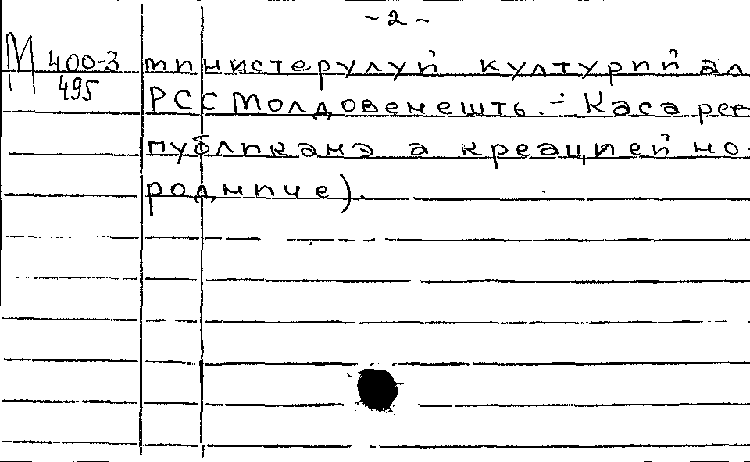 - 2 -
М 400-3
495
министерулуй културий ал
РСС Молдовенешть. - Каса реп
публикана а креацией но-
роднпче).